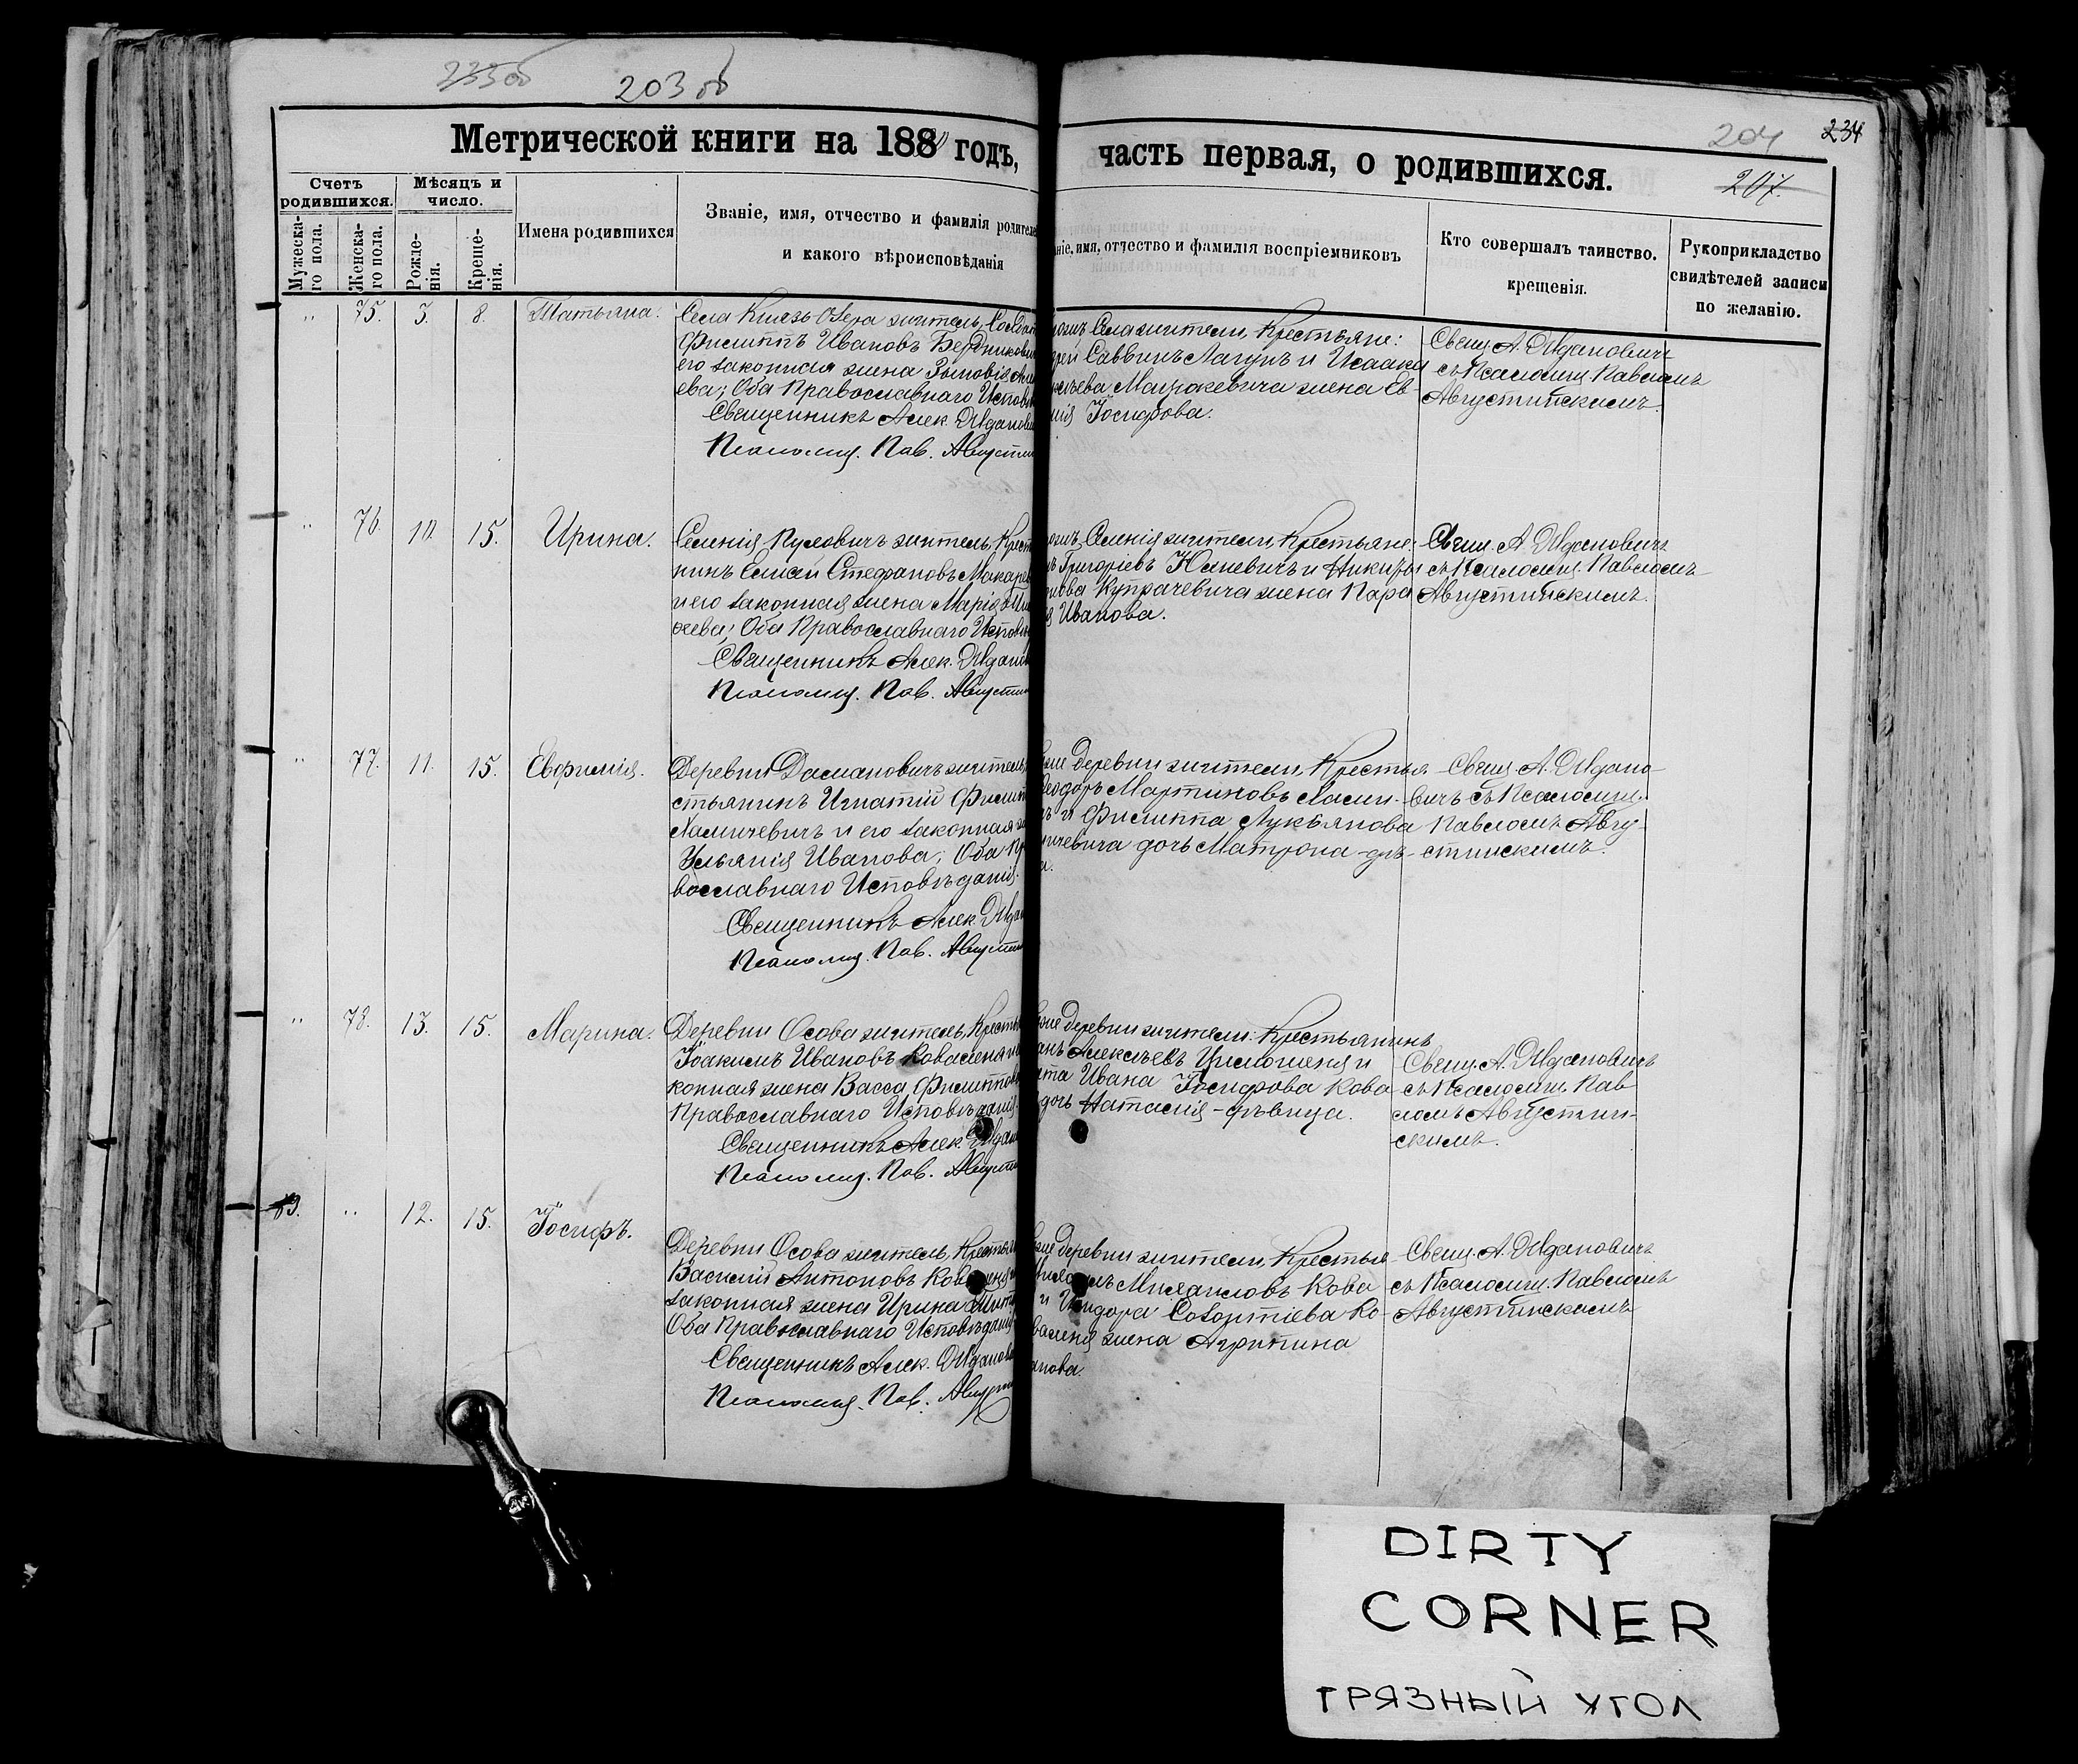 233 об
203 об
204
234
207.
Метрической книги на 188 годъ,
часть первая, о родившихся.
Счетъ родившихся.
Мѣсяцъ и число.
Мужеска-го пола.
Женска-го пола.
Рожде-нія.
Креще-нія.
Имена родившихся
Званіе, имя, отчество и фамилія родителе
и какого вѣроисповѣданія
ніе, имя, отчество и фамилія воспріемниковъ
Кто совершалъ таинство.
крещенія.
Рукоприкладство
свидѣтелей записи
по желанію.
" 75. 5. 8. Татьяна.
Села Князь-Озера житель, Солдат
Филиппъ Ивановъ Бердникович
его законная жена Зиновія
ева; Оба Православнаго Исповѣ
Священникъ Алек. Жданович
Псаломщ. Пав. Августин
Села жители, Крестьяне:
Саввинъ Лагунъ и Исаака
Макаревича жена Ев-
нія Іосифова.
Свящ. А. Ждановичъ
съ Псаломщ. Павломъ
Августинскимъ.
" 76 10. 15. Ирина.
Селенія Пуховичъ житель, Крест
нинъ Елисей Стефановъ Макаре
и его законная жена Марія
еева; Оба Православнаго Исповѣ
Священникъ Алек. Ждано
Псаломщ. Пав. Августин
Селенія жители, Крестьяне:
Григоріевъ Юхневичъ и Никиты
Купрачевича жена Пара
Иванова.
Свящ. А. Ждановичъ
съ Псаломщ. Павломъ
Августинскимъ.
" 77. 11. 15. Евфимія.
Деревни Дамановичъ житель,
стьянинъ Игнатій Филип
Хамичевичъ и его законная
Ульянія Иванова; Оба Пр
вославнаго Исповѣданія.
Священникъ Алек. Ждан
Псаломщ. Пав. Августин
деревни жители, Крестья
Ѳеодоръ Мартиновъ Хами-
и Филиппа Лукьянова
ичевича дочь Матрона - дѣ-
Свящ. А. Ждано-
вичъ съ Псаломщ.
Павломъ Авгу-
стинскимъ.
" 78. 13. 15. Марина.
Деревни Осова житель, Кресть
Іоакимъ Ивановъ Коваленя
конная жена Васса Филиппов
Православнаго Исповѣданія.
Священникъ Алек. Ждан
Псаломщ. Пав. Августи
деревни жители: Крестьянинъ
Алексѣевъ и
Ивана Іосифова Кова
дочь Наталія - дѣвица.
Свящ. А. Ждановичъ
съ Псаломщ. Пав
ломъ Августин-
скимъ.
" 12. 15. Іосифъ.
Деревни Осова житель, Крестья
Василій Антоновъ Коваленя
законная жена Ирина
Оба Православнаго Исповѣдані
Священникъ Алек. Жданов
Псаломщ. Пав. Августи
деревни жители, Крестья
Михаиловъ Кова
и Исидора Ко-
валеня жена Агрипина
анова.
Свящ. А. Ждановичъ
съ Псаломщ. Павломъ
Августинскимъ
DIRTY
CORNER
ГРЯЗНЫЙ УГОЛ